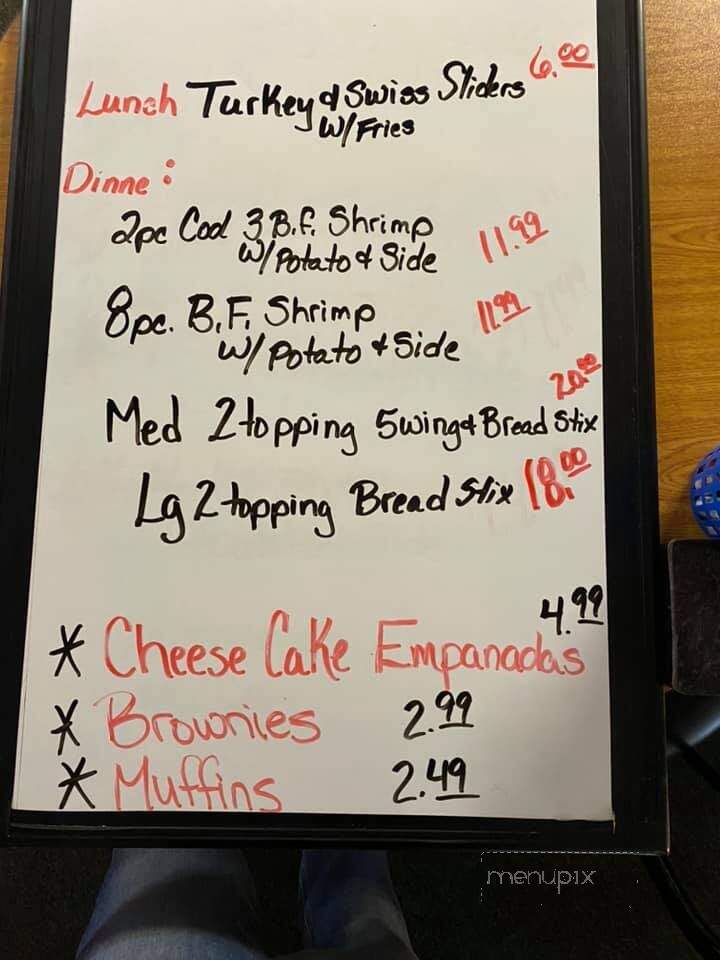 Lunch Turkey & Swiss Sliders 6.00
W/Fries
Dinne:
2pc Cod 3 B.F. Shrimp
W/Potato & Side 11.99
8pc. B.F. Shrimp 11.99
W/ Potato & Side
20.00
Med 2 topping 5wing & Bread Stix
Lg 2 topping Bread Stix 18.00
4.99
* Cheese Cake Empanadas
* Brownies 2.99
* Muffins 2.49
menupix